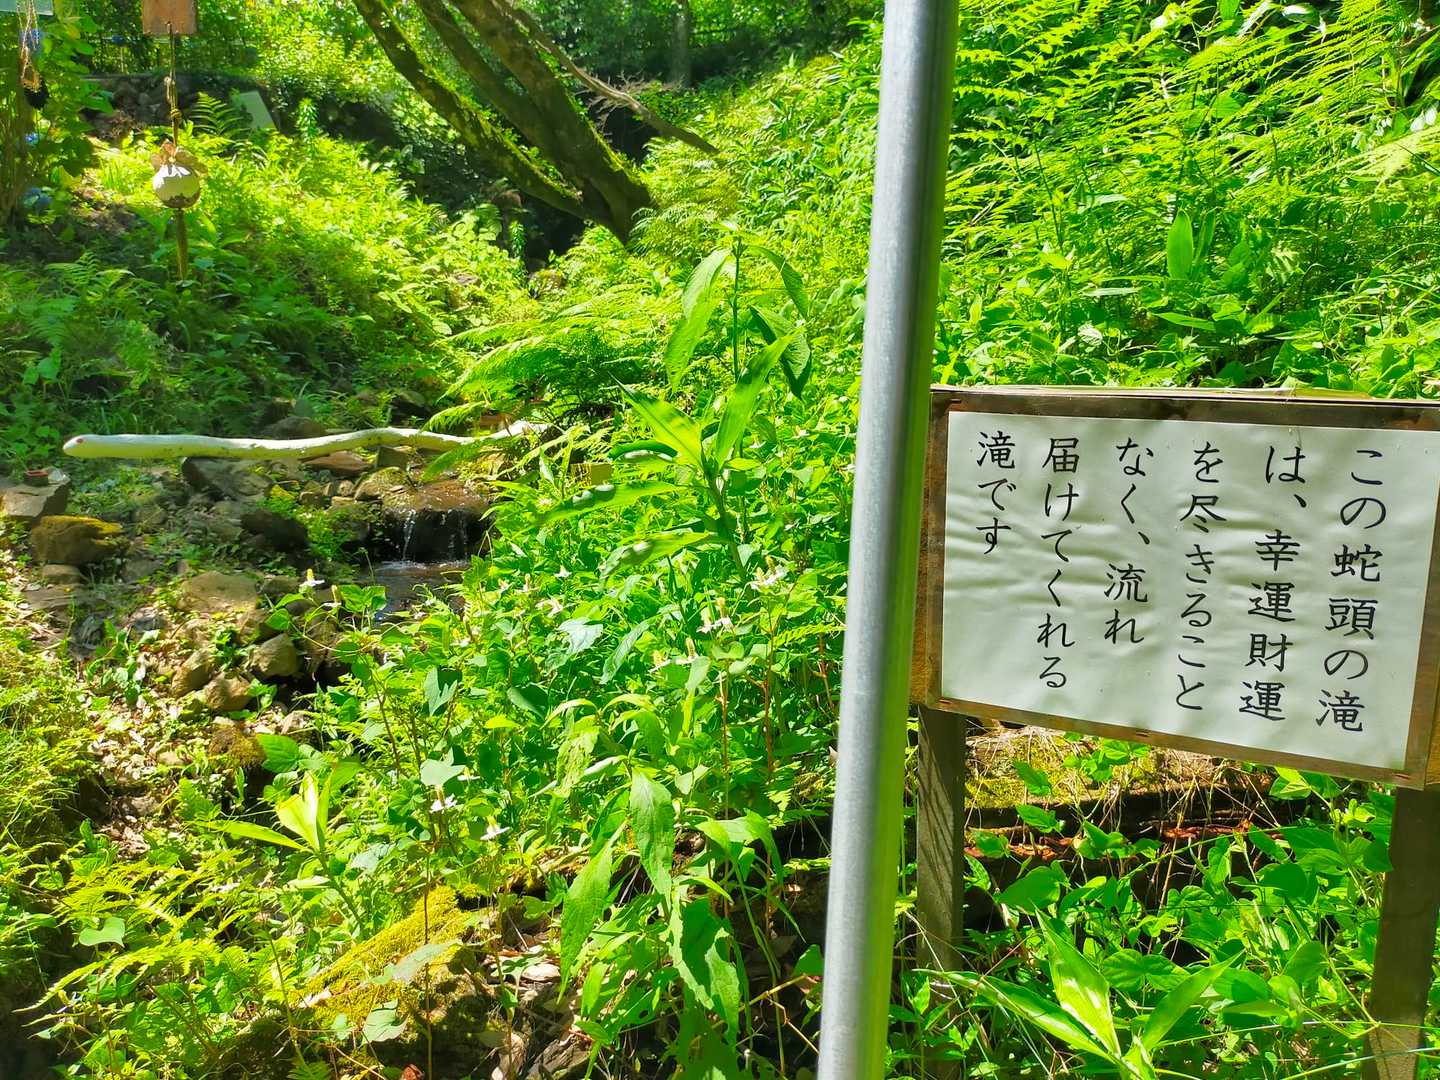 この蛇頭の滝
は、幸運財運
を尽きること
なく、流れ
届けてくれる
滝です